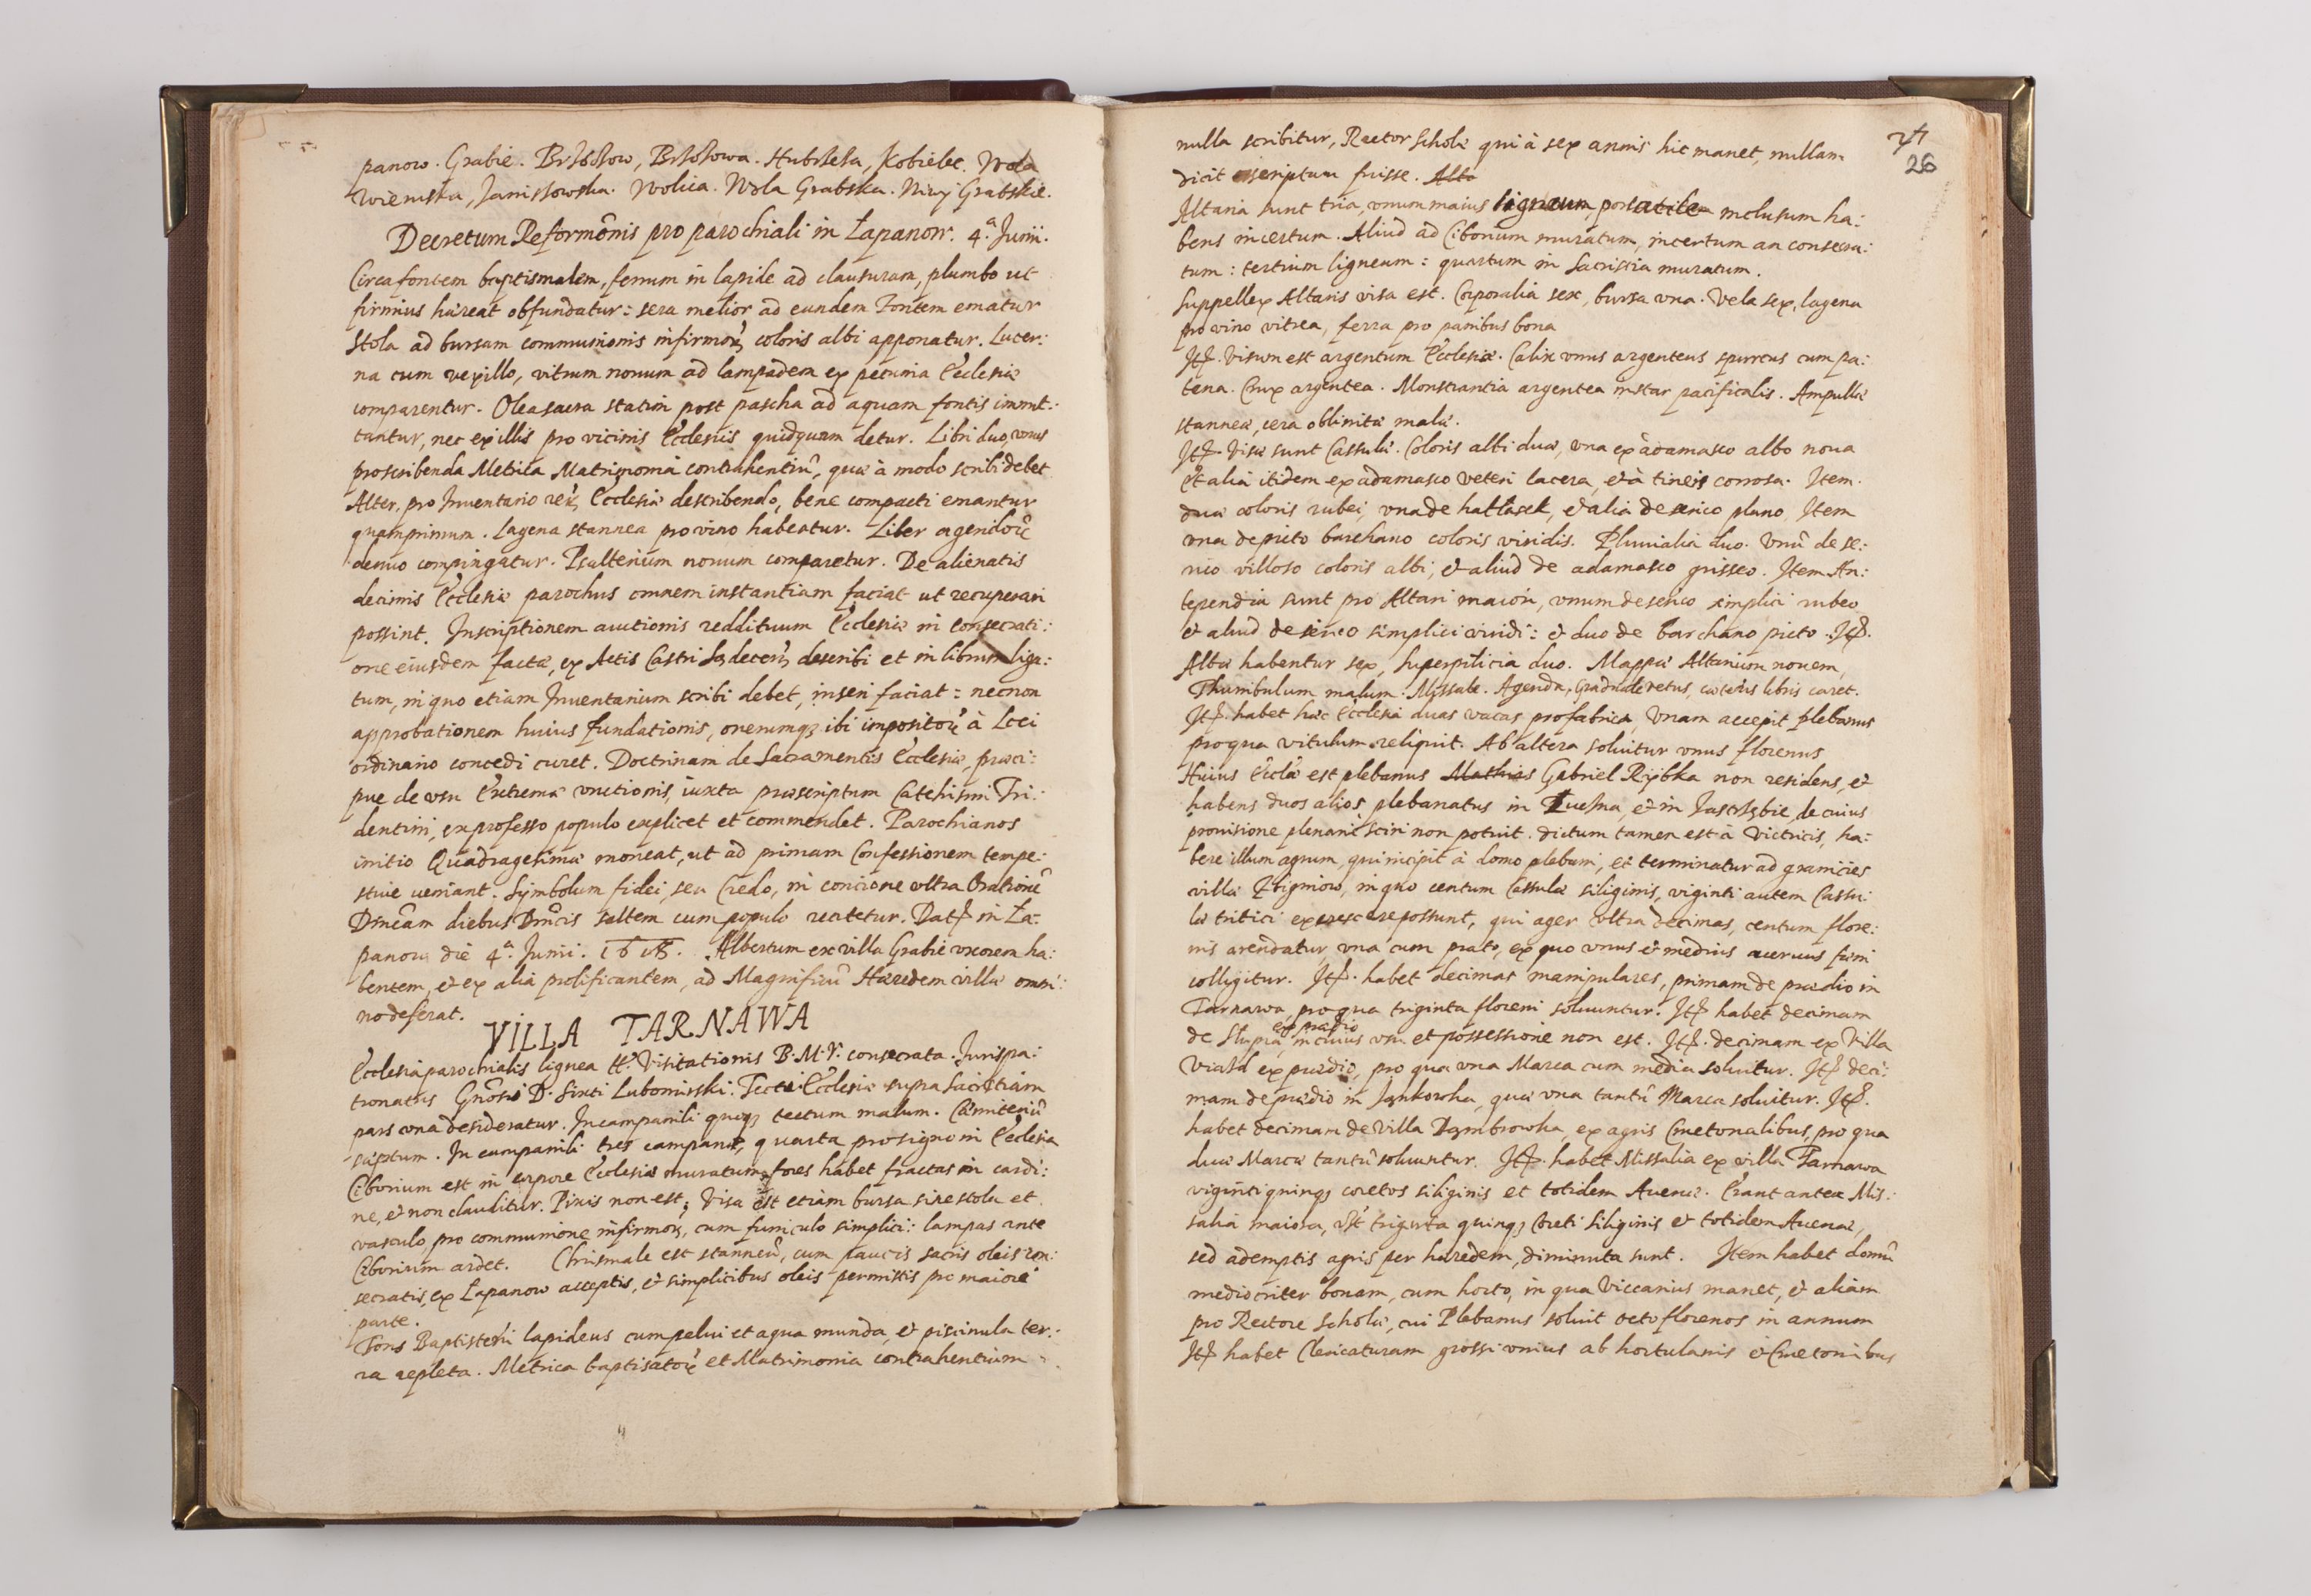 panow. Grabie. Brzozow, Brzozowa. Hubrzeża, Kobielec. Wola
Wieruska, Janissowska. Wolica. Wola Grabska. Niwy Grabskie.
Decretum Reformõnis pro parochiali in Łapanow. 4.ª Junij.
Circa fontem baptismalem, ferrum in lapide ad clausuram, plumbo ut
firmius hæreat obfundatur: sera melior ad eundem Fontem ematur
Stola ad bursam communionis infirmoꝝ coloris albi apponatur. Lucer:
na cum vexillo, vitrum nouum ad lampadem ex pecunia Ecclesiæ
comparentur. Olea sacra statim post pascha ad aquam fontis immit:
tantur, nec ex illis pro vicinis Ecclesiis quidquam detur. Libri duo, vnus
pro scribenda Metrica Matrimonia contrahentiũ, quæ à modo scribi debet
Alter, pro Inuentario reꝝ Ecclesiæ describendo, bene compacti emantur
quamprimum. Lagena stannea pro vino habeatur. Liber agendoꝝ
denuo compingatur. Psalterium nouum comparetur. De alienatis
decimis Ecclesiæ parochus omnem instantiam faciat ut recuperari
possint. Inscriptionem auctionis reddituum Ecclesiæ in consecrati:
one eiusdem factæ, ex Actis Castri Sądeceñ describi et in librum liga:
tum, in quo etiam Inuentarium scribi debet, inseri faciat: necnon
approbationem huius fundationis, onerumqꝫ ibi impositoꝝ à Loci
ordinario concedi curet. Doctrinam de Sacramentis Ecclesiæ, præci:
pue de vsu Extremæ vnctionis, iuxta præscriptum Catechismi Tri:
dentini, ex professo populo explicet et commendet. Parochianos
initio Quadragesimæ moneat, ut ad primam Confessionem tempe:
stiue ueniant. Symbolum fidei, seu Credo, in concione vltra Orationẽ
Dnicam diebus Dnicis saltem cum populo recitetur. Dat in Ła:
panow die 4.ª Junii. Albertum ex villa Grabie vxorem ha:
bentem, et ex alia prolificantem, ad Magnificũ Hæredem villæ omni:
no deferat.
VILLA TARNAWA
Ecclesia parochialis lignea tt. Visitationis B. M. V. consecrata. Jurispa:
tronatus Gnosi D. Sixti Lubomirski. Tecti Ecclesiæ supra Sacristiam
pars vna desideratur. In campanili quoqꝫ tectum malum. Cæmiteriũ
sæptum. In campanili tres campanæ, quarta pro signo in Ecclesia
Ciborium est in corpore Ecclesiæ muratum, fores habet fractas in cardi:
ne, et non clauditur. Pixis non est; Visa est etiam bursa sine stola et
vasculo, pro communione infirmoꝝ, cum funiculo simplici: lampas ante
Ciborium ardet. Chrismale est stanneũ, cum paucis sacris oleis con:
secratis, ex Łapanow acceptis, et simplicibus oleis permistis pro maiore
parte.
Fons Baptisterii lapideus cum pelui et aqua munda, et piscinula ter:
ra repleta. Metrica baptisatoꝝ et Matrimonia contrahentium
26
nulla scribitur, Rector Scholæ qui à sex annis hic manet, nullam
dicit scriptam fuisse. Alta
Altaria sunt tria, vnum maius ligneum, portatile inclusum ha:
bens incertum. Aliud ad Ciborium muratum, incertum an consecra:
tum: tertium ligneum: quartum in Sacristia muratum.
Suppellex Altaris visa est. Corporalia sex, bursa vna. Vela sex, lagena
pro vino vitrea, ferra pro panibus bona
It. Visum est argentum Ecclesiæ. Calix vnus argenteus spurcus cum pa:
tena. Crux argentea. Monstrantia argentea instar pacificalis. Ampullæ
stanneæ, cera oblimitæ malæ.
It. Visæ sunt Cassulæ. Coloris albi duæ, vna ex adamasco albo noua
Et alia itidem ex adamasco veteri lacera, et à tineis corrosa. Item
duæ coloris rubei, vna de hatłasek, et alia de serico plano, Item
vna de picto barchano coloris viridis. Pluuialia duo. Vnũ de se:
rico villoso coloris albi, et aliud de adamasco grisseo. Item An:
tependia sunt pro Altari maiori, vnum de serico simplici rubeo
et aliud de serico simplici viridi: et duo de barchano picto. It.
Albæ habentur sex, Superpilicia duo. Mappæ Altarium nouem,
Thuribulum malum. Missale. Agenda, Graduale vetus, cæteris libris caret.
It. habet hæc Ecclesia duas vacas pro fabrica, Vnam accepit plebanus
pro qua vitulum reliquit. Ab altera soluitur vnus florenus
Huius Ecclæ est plebanus Mathias Gabriel Rybka non residens, et
habens duos alios plebanatus in et in Jastrzębie, de cuius
prouisione plenarie sciri non potuit. dictum tamen est à Vitricis, ha:
bere illum agrum, qui incipit à domo plebani, et terminatur ad granicies
villæ Zbigniow, in quo centum Cassulæ siliginis, viginti autem Cassu:
læ tritici excrescere possunt, qui ager vltra decimas, centum flore:
nis arendatur, vna cum prato, ex quo vnus et medius aceruus fæni
colligitur. It. habet decimas manipulares, primam de prædio in
Tarnawa, pro qua triginta floreni soluuntur. It habet decimam
ex prædio
de Słupia, in cuius vsu et possessione non est. It. decimam ex Villa
ex prædio, pro qua vna Marca cum media soluitur. It deci:
mam de prædio in Jankowka, quæ vna tantũ Marca soluitur. It.
habet decimam de Villa Dąmbrowka, ex agris Cmetonalibus, pro qua
duæ Marcæ tantũ soluuntur. It. habet Missalia ex villa Tarnawa
viginti quinqꝫ coretos siliginis et totidem Auenæ. Erant antea Mis:
salia maiora, Vt triginta quinqꝫ Coreti Siliginis et totidem Auenæ,
sed ademptis agris per hæredem, diminuta sunt. Item habet domũ
mediocriter bonam, cum horto, in qua Viccarius manet, et aliam
pro Rectore Scholæ, cui Plebanus soluit octo florenos in annum
It habet Clericaturam grossi vnius ab hortulanis et Cmetonibus